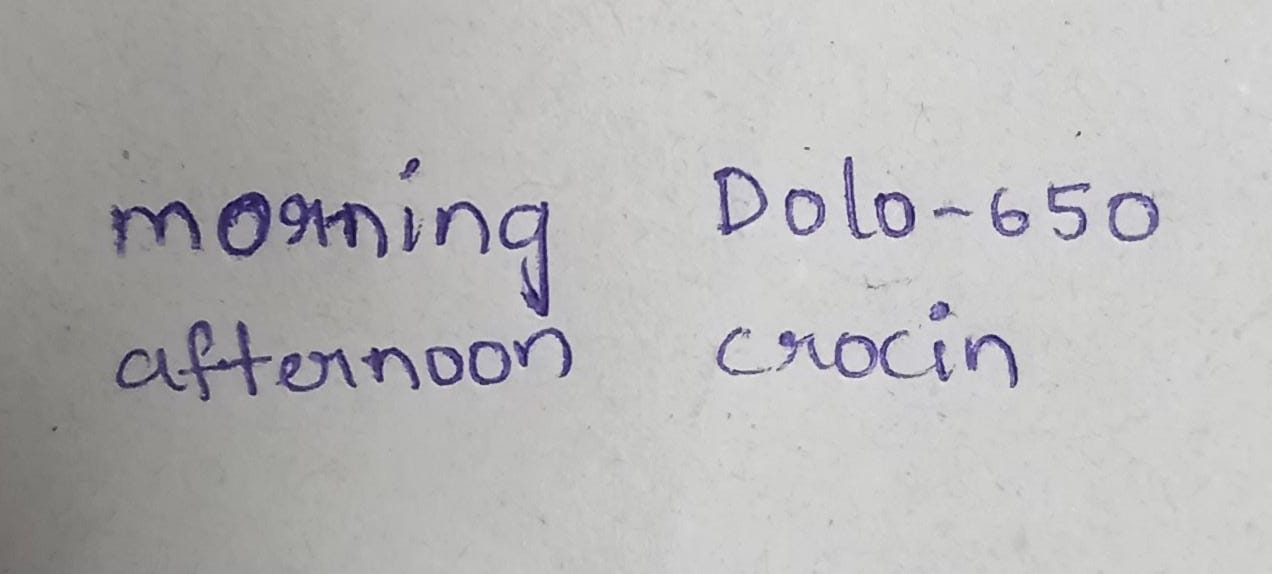 morning Dolo-650
afternoon crocin